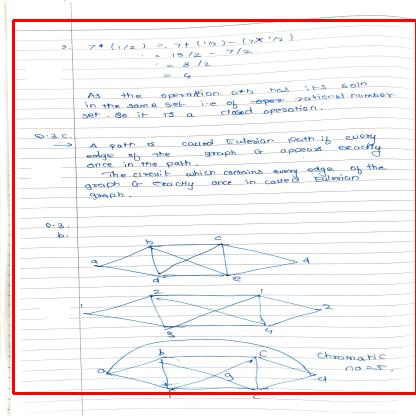 3. 7 * (1/2) = 7 + (1/2) - (7 * 1/2)
= 15/2 - 7/2
= 8/2
= 4
As the operation has its soln
in the same set i.e of rational number
set. So it is a closed operation.
Q.3.C.
→ A path is called Eulerian path if every
edge of the graph G appears exactly
once in the path.
The circuit which contains every edge of the
graph G exactly once in called Eulerian
graph.
Q.3.
b.
b c
a d
d e
2 1
1 2
3 4
b c
a g d
Chromatic
no = 5.